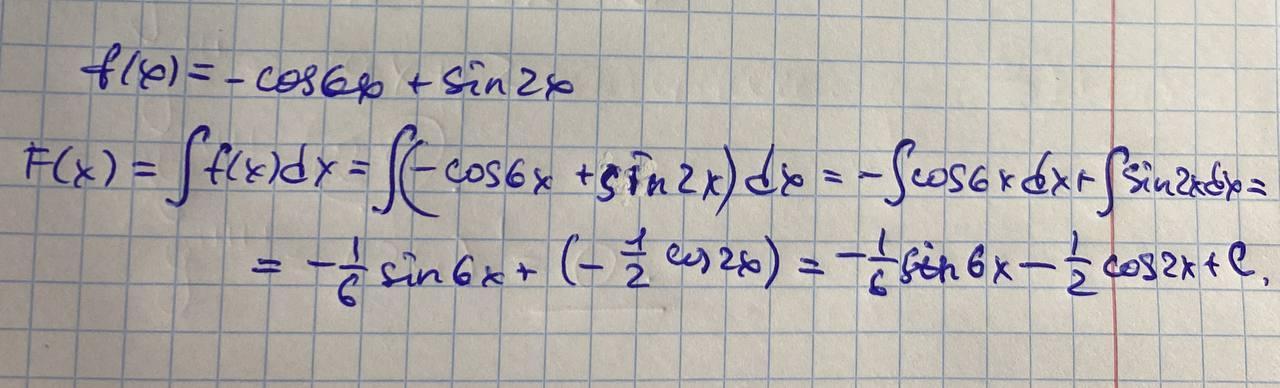 f(x) = -cos6x + sin2x
F(x) = ∫f(x)dx = ∫(-cos6x + sin2x)dx = -∫cos6xdx + ∫sin2xdx =
= -1/6 sin6x + (-1/2 cos2x) = -1/6 sin6x - 1/2 cos2x + C,